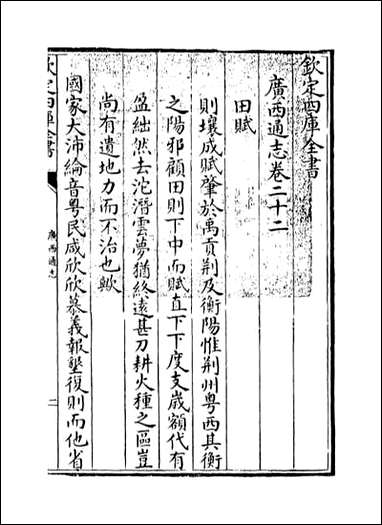 欽定四庫全書
廣西通志卷二十二
田賦
則壤成賦肇於禹貢荆及衡陽惟荆州粤西其衡
之陽邪顧田則下中而賦直下下度支歲額代有
盈絀然去沱潛雲夢猶終遠甚刀耕火種之區豈
尚有遺地力而不治也歟
國家大沛綸音粤民咸欣欣慕義報墾復則而他省
欽定四庫全書
廣西通志